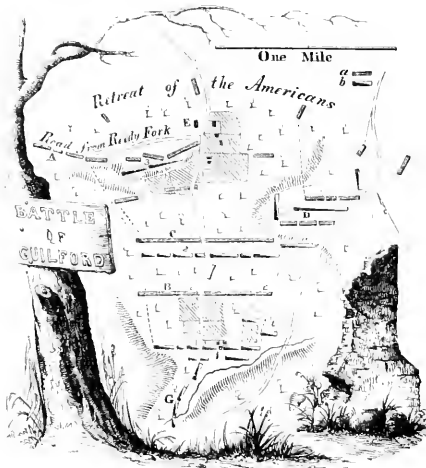 One Mile
a
b
Retreat of the Americans
E
Road from Reedy Fork
A
D
BATTLE
OF
GUILFORD
C
B
G